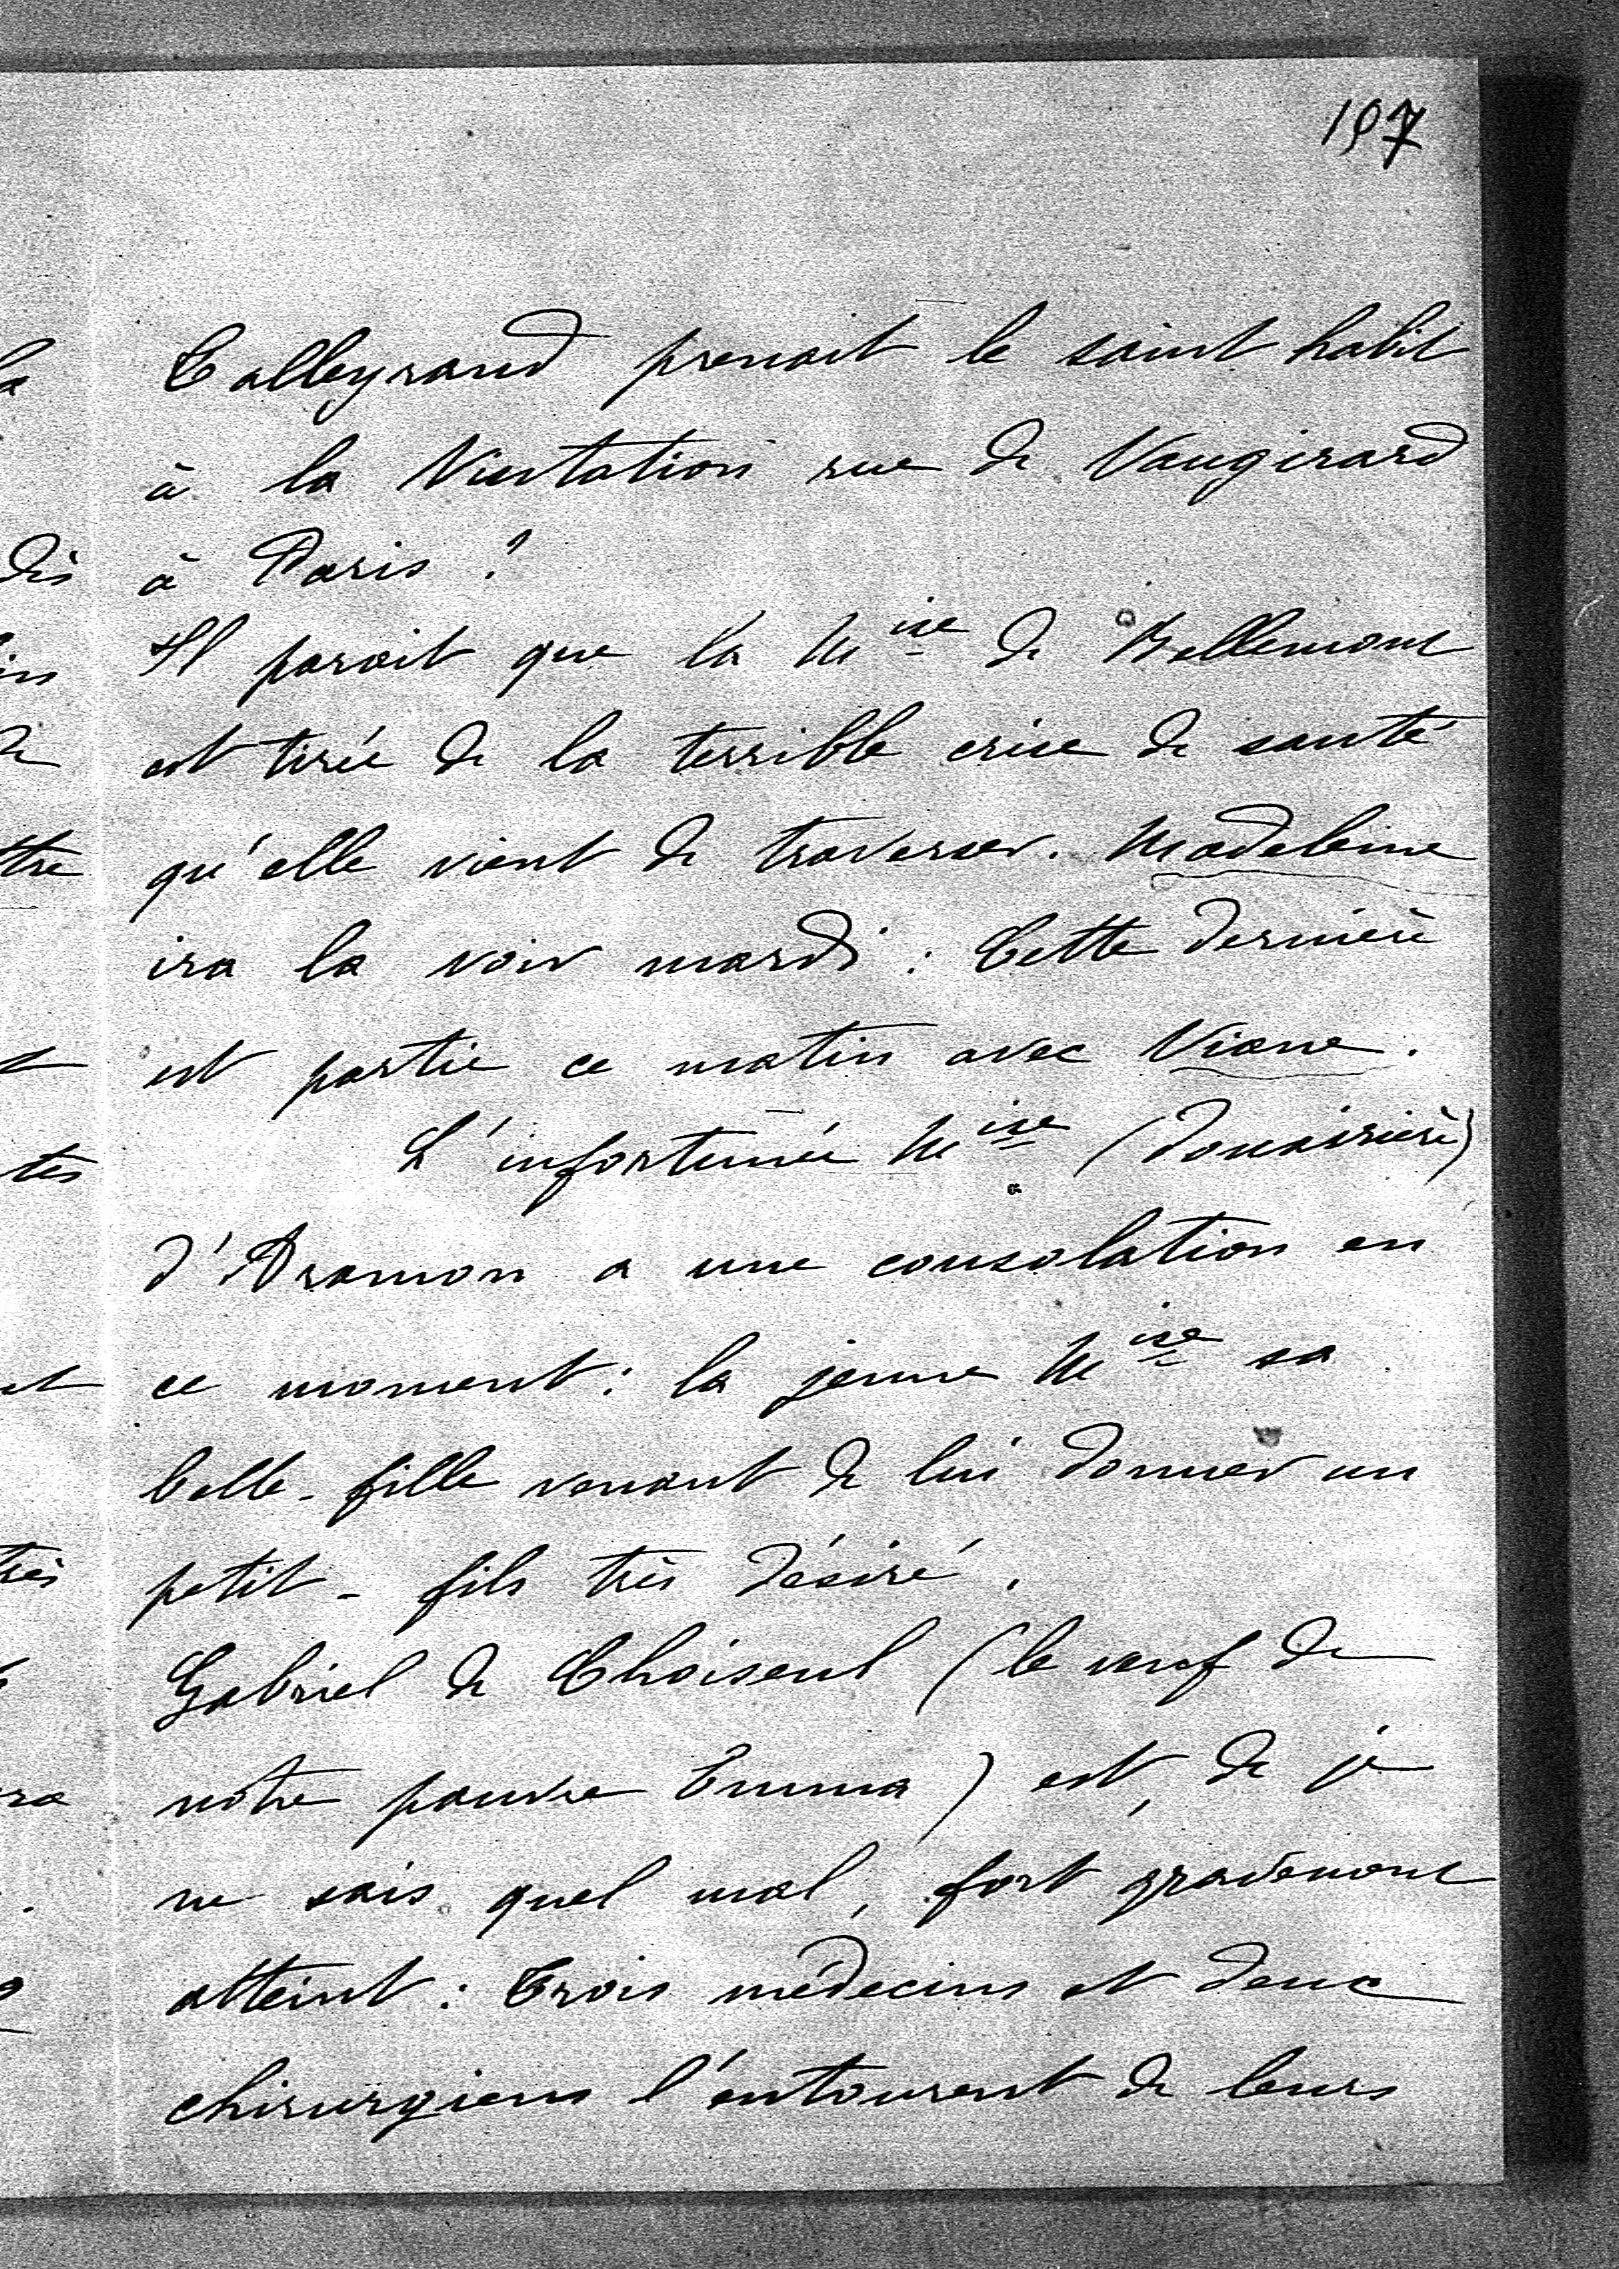 197
Talleyrand prenait le saint habit
à la Visitation rue de Vaugirard
à Paris !
Il parait que la Mise de Bellemont
est tirée de la terrible crise de santé
qu'elle vient de traverser. Madeleine
ira la voir mardi : Cette dernière
est partie ce matin avec Viane.
L'infortunée Mise (douairière)
d'Aramon a une consolation en
ce moment : la jeune Mise sa
belle-fille venant de lui donner un
petit-fils très désiré.
Gabriel de Choiseul (le veuf de
notre pauvre Emma) est, de je
ne sais quel mal, fort gravement
atteint : Trois médecins et deux
chirurgiens l'entourent de leurs